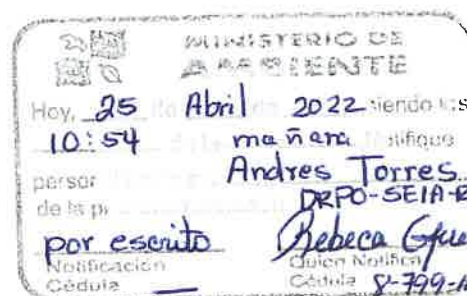 MINISTERIO DE
AMBIENTE
Hoy, 25 de Abril de 2022 siendo las
10:54 de la mañana notifique
persor Andres Torres
de la pr DRPO-SEIA-
por escrito Rebeca
Notificación Quien Notifica
Cédula — Cédula 8-799-